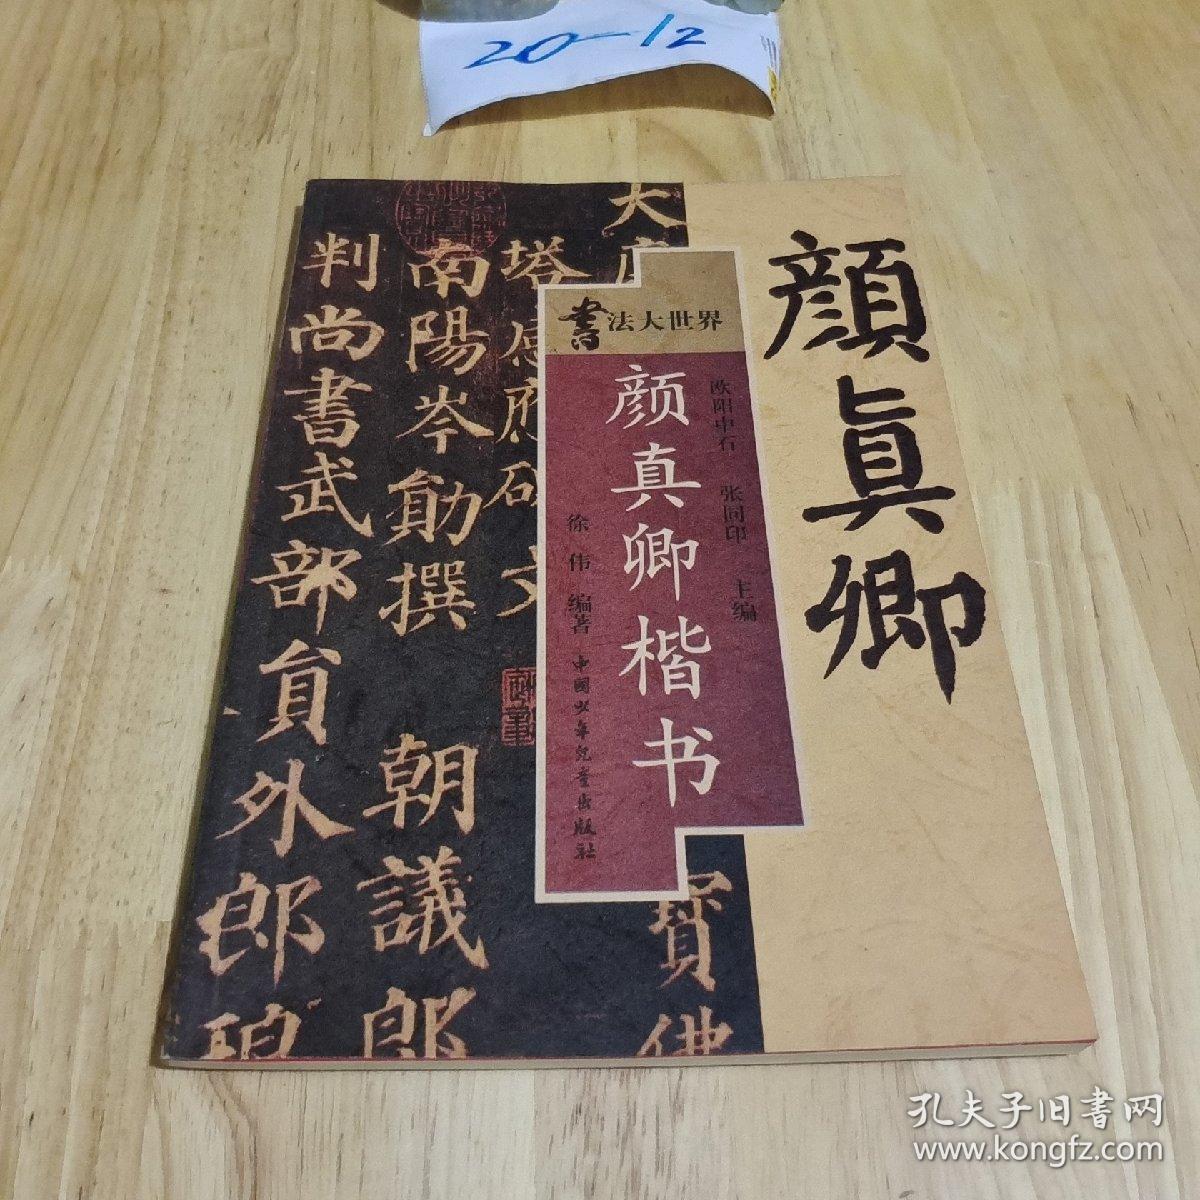 20-12
顔眞卿
書法大世界
欧阳中石 张同印 主编
颜真卿楷书
徐伟 编著
中國少年兒童出版社
大唐
寳佛
塔感應碑文
南陽岑勛撰 朝議郎
判尚書武部貟外郎琅
孔夫子旧書网
www.kongfz.com